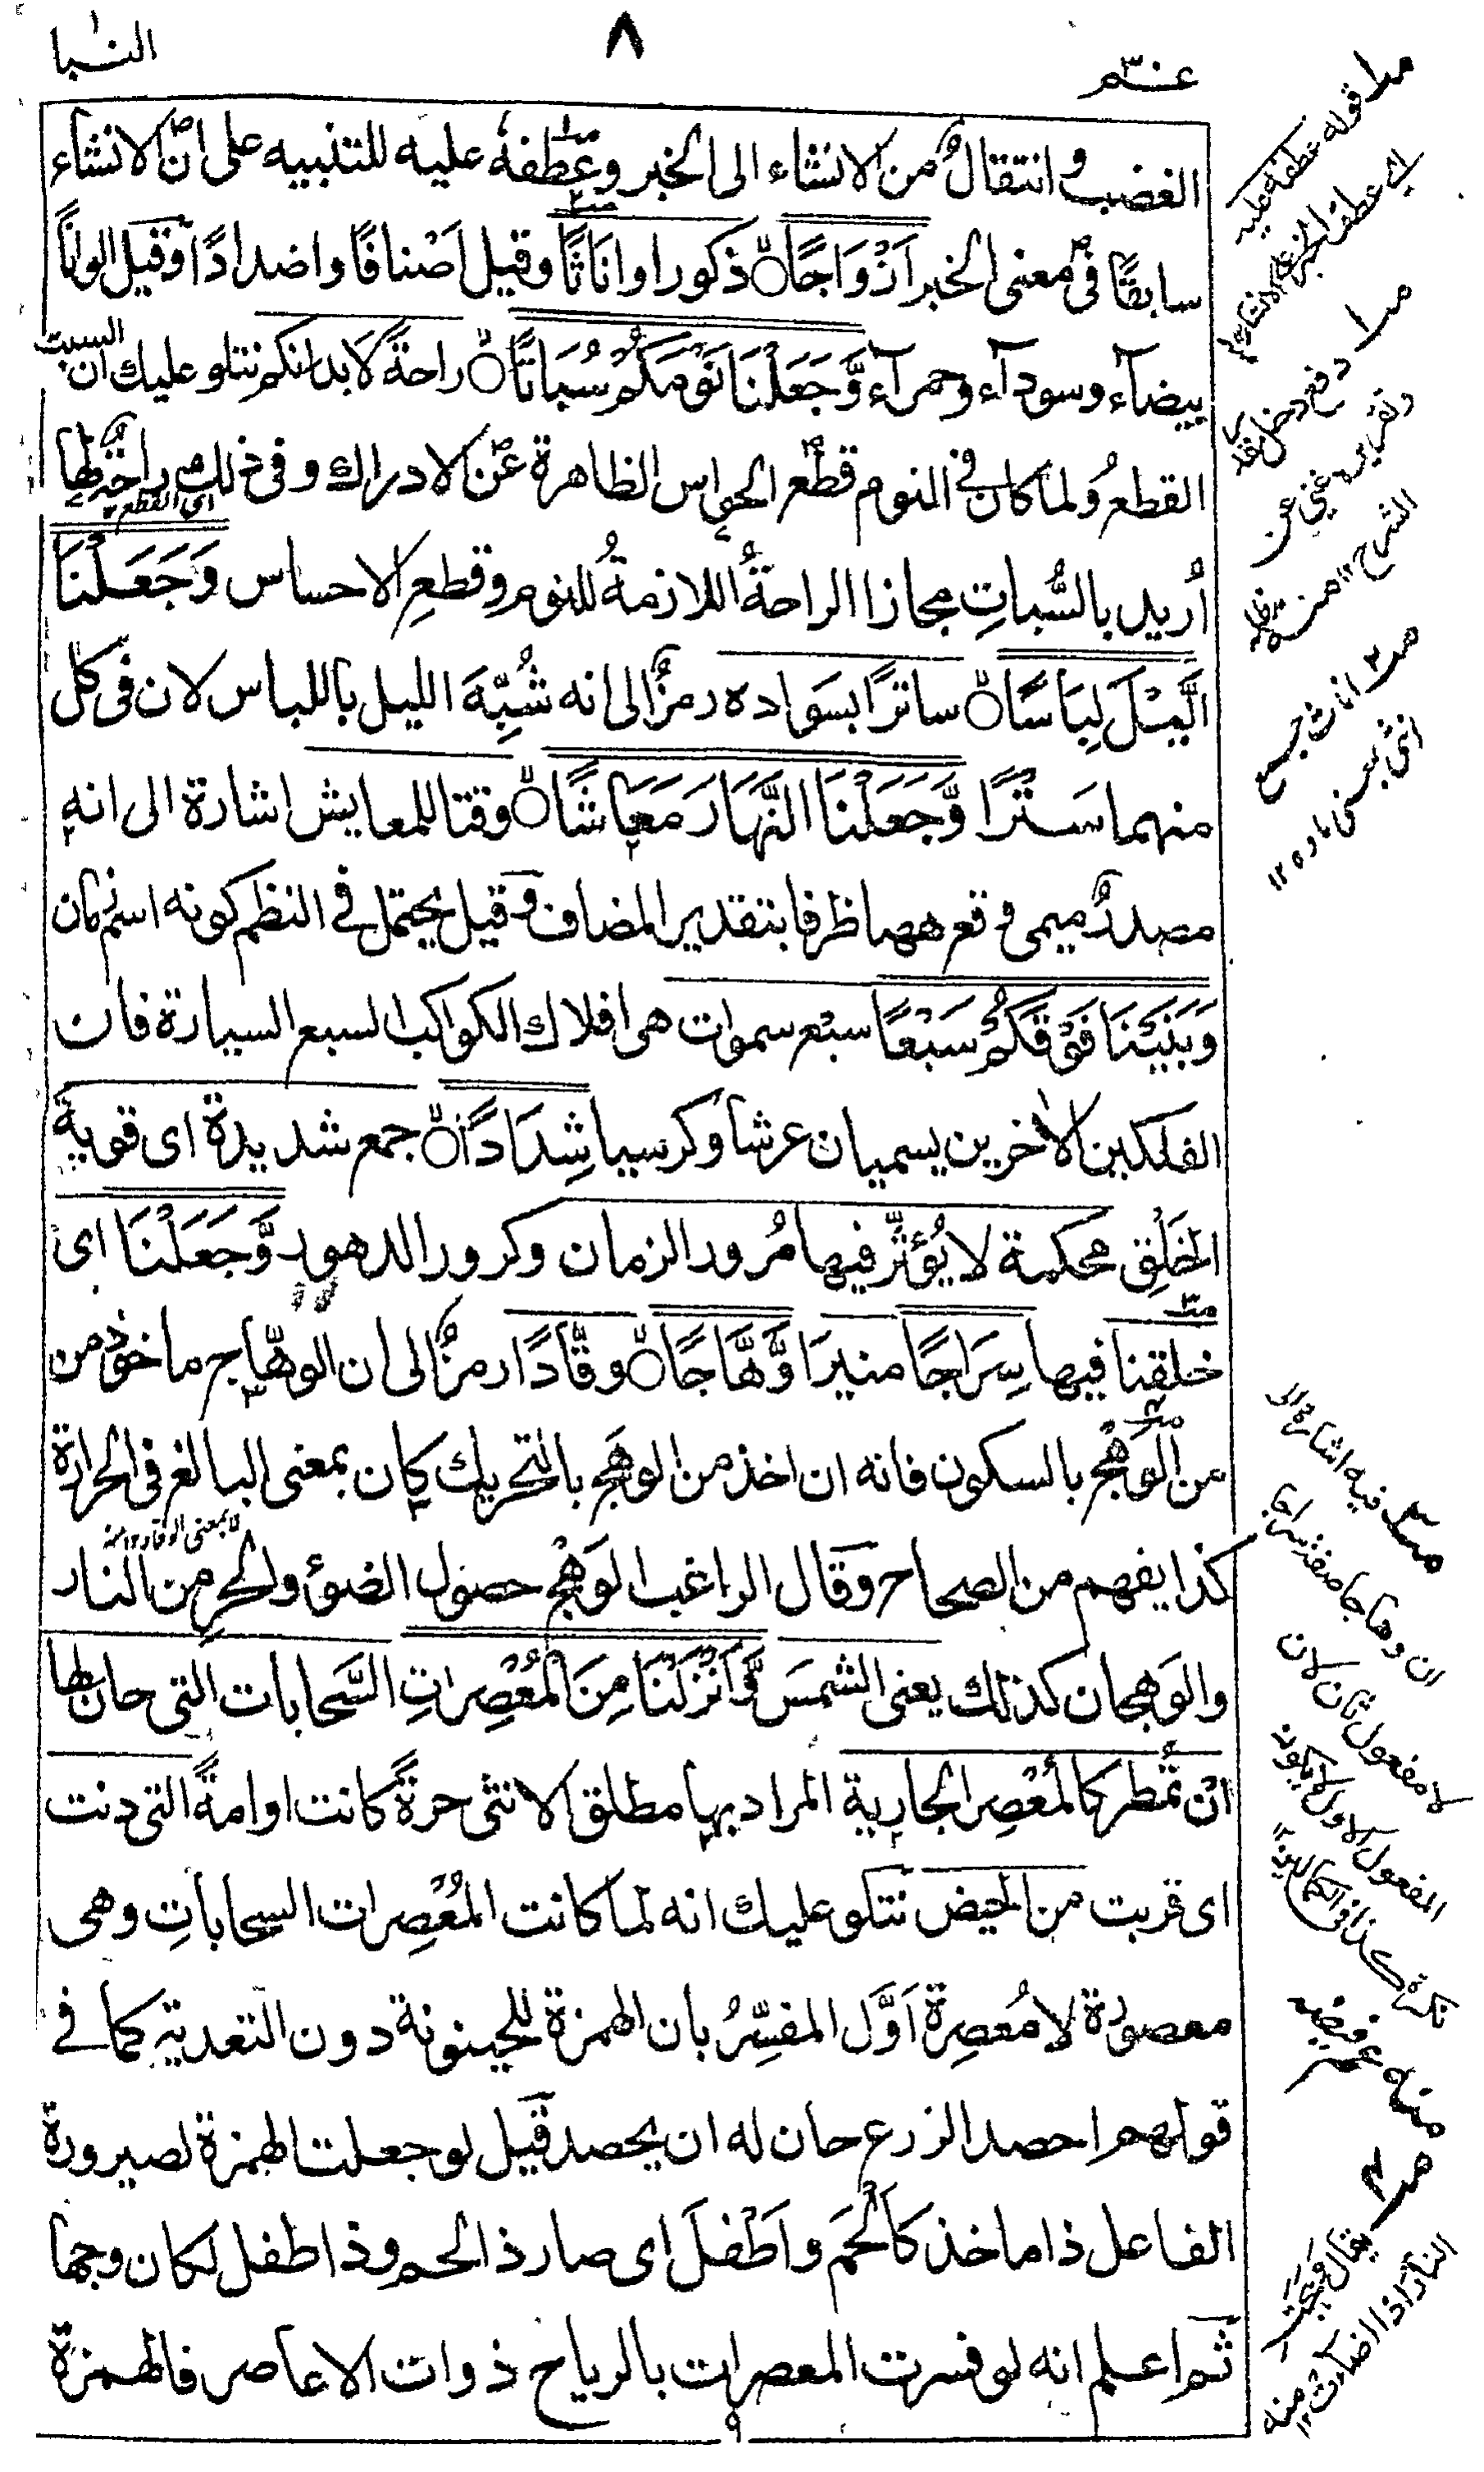 النبا
٨
عـم٣٠
الغضب وانتقالٌ من الانشاء الى الخبر وعطفهٗ عليه للتنبيه على ان الانشاء
سابقًا فى معنى الخبر اَزْوَاجًا ۙ ذكورا واناثًا وقيل اَصْنافًا واضدادًا وقيل الوانًا
بيضآء وسودآء وحمرآء وَّجَعَلْنَا نَوْمَكُمْ سُبَاتًا ۙ راحةً لابدانكم نتلو عليك ان السبت
القطعُ ولما كان فى النوم قطع الحواس الظاهرة عن الادراك وفى ذلك راحةٌ لها
اى القطع
اُريد بالسُّباتِ مجازا الراحةُ اللازمةُ للنوم وقطعِ الاحساس وَجَعَلْنَا
الَّيْلَ لِبَاسًا ۙ ساترًا بسَواده رمزٌ الى انه شُبِّهَ الليل باللباس لان فى كل
منهما سَتْرًا وَّجَعَلْنَا النَّهَارَ مَعَاشًا ۙ وقتا للمعايش اشارة الى انه
مصدرٌ ميمى وقع ههنا ظرفا بتقدير المضاف وقيل يحتمل فى النظم كونه اسم زمان
وَبَنَيْنَا فَوْقَكُمْ سَبْعًا سبْع سموات هى افلاك الكواكب السبع السيارة فان
الفلكين الاخرين يسميان عرشا وكرسيا شِدَادًا ۙ جمع شديدة اى قوية
الخَلْقِ محكمة لا يُؤثِّر فيها مُرور الزمان وكرور الدهور وَّجَعَلْنَا اى
خلقنا فيها سِرَاجًا منيرَا وَّهَّاجًا ۙ وقّادًا رمزٌ الى ان الوهّاج ماخوذ من
من الوَهْج بالسكون فانه ان اخذ من الوهَج بالتحريك كان بمعنى البالغ فى الحرارة
لا بمعنى الوقاد ١٢ منه
كذا يفهم من الصحاح وقال الراغب الوَهْج حصول الضوْ والحرِ من النار
والوَهجان كذلك يعنى الشمسَ وَّاَنْزَلْنَا مِنَ الْمُعْصِرٰتِ السَّحابات التى حان لها
انْ تُمطر كالمُعْصِر الجارية المراد بها مطلق الانثى حرةً كانت او امةً التى دنت
اى قربت من الحيض نتلو عليك انه لما كانت المُعْصِرات السحاباتِ وهى
معصورة لا مُعصِرة اَوَّل المفسِّرُ بان الهمزة للحينونة دون التعدية كما فى
قولهم احصد الزرع حان له ان يحصد قيل لو جعلت الهمزة لصيرورة
الفاعل ذا ماخذ كاَلْحَم واَطْفلَ اى صار ذا لحم وذا طفل لكان وجها
ثم اعلم انه لو فسرت المعصرات بالرياح ذوات الاعاصر فالهمزة
٩
صـ١ قوله عطفه عليه
اى عطف الخبر على الانشاء ١٢
دفع دخل
وتقريره غنى عن
الشرح ١٢ منه
صـ٢ اناث جمع
انثى بمعنى ماده ١٢
صـ٣ فيه اشارة الى
ان وهاجا صفة سراجا
لا مفعول ثان لان
المفعول الاول لا يكون
نكرة كذا فى الكمالين
منه
صـ٤ يقال وهجت
النار اذا اضاءت ١٢ منه